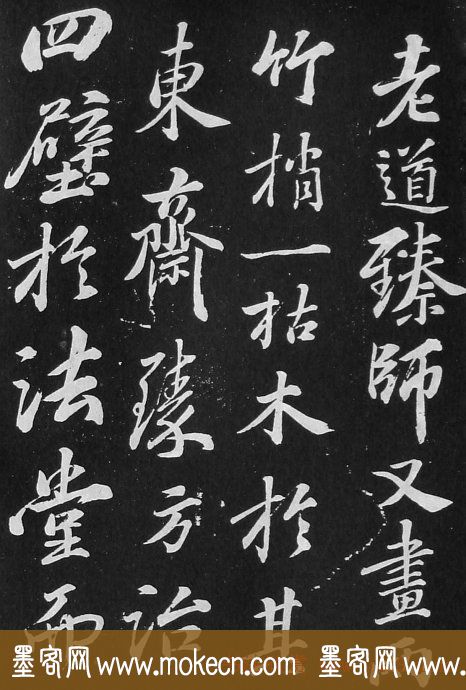 老道臻師又畫兩
竹梢一枯木於其
東齋臻方治
四壁於法堂而
墨客网 www.mokecn.com 墨客网 www.mokecn.com